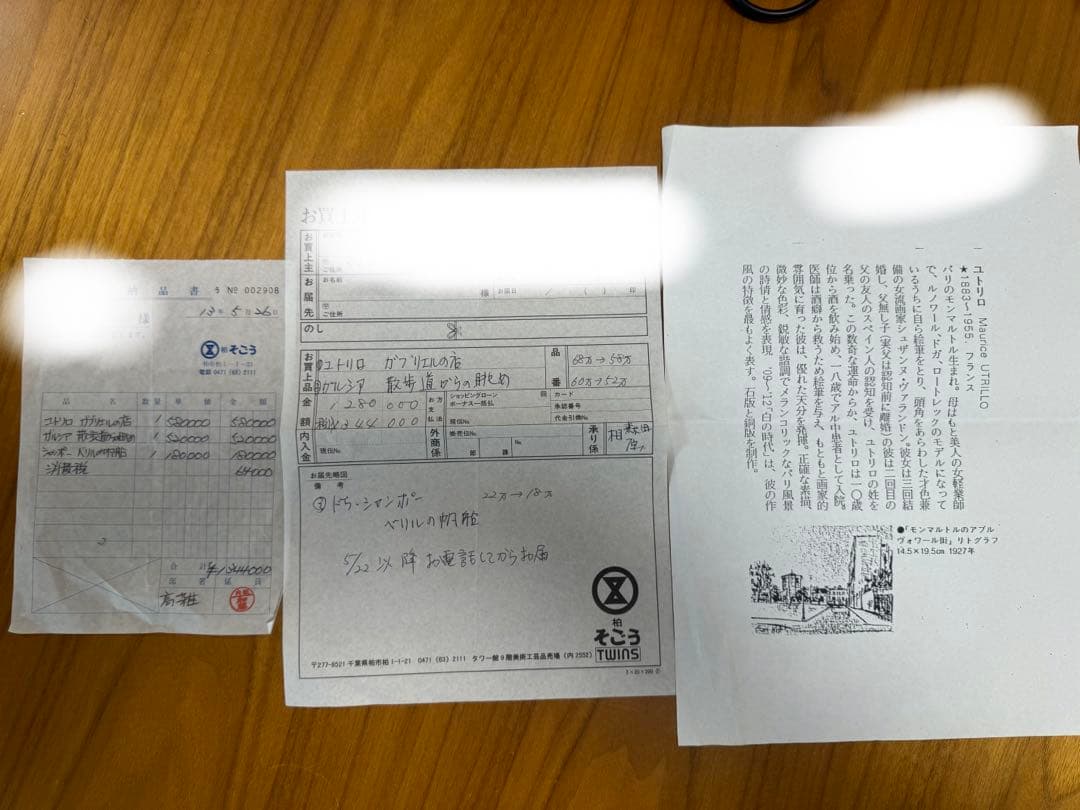 納品書 う № 002908
様
13年5月26日
柏 そごう
柏市柏1-1-21
電話 0471 (63) 2111
品名 数量 単価 金額
ユトリロ ガブリエルの店 1 580000 580000
ガルシア 散歩道からの眺め 1 520000 520000
1 180000 180000
消費税 64000
合計 ¥1344000
部署 係員
お買上
お買上主
ご住所
お届先
お名前 様 お届日 印
ご住所
のし
お買上品
①ユトリロ ガブリエルの店
②ガルシア 散歩道からの眺め
品番
68万→58万
60万→52万
金額
1280000
税込1344000
お支払方法
ショッピングローン 回
ボーナス一括払
カード
承認番号
現伝No.
代金引換No.
内入金
現伝No.
外商係
掛売伝No.
部 課
No.
承り係
お届先略図
備考
③ドゥ・シャンポー 22万→18万
ベリルの帆船
5/22以降お電話してからお届
柏
そごう
TWINS
〒277-8521 千葉県柏市柏1-1-21 0471 (63) 2111 タワー館9階美術工芸品売場 (内2552)
ユトリロ Maurice UTRILLO
★1883〜1955。フランス
パリのモンマルトル生まれ。母はもと美人の女軽業師
で、ルノワール、ドガ、ロートレックのモデルになって
いるうちに自ら絵筆をとり、頭角をあらわした才色兼
備の女流画家シュザンヌ・ヴァランドン。彼女は三回結
婚し、父無し子（実父は認知前に離婚）の彼は二回目の
父の友人のスペイン人の認知を受け、ユトリロの姓を
名乗った。この数奇な運命からか、ユトリロは一〇歳
位から酒を飲み始め、一八歳でアル中患者として入院。
医師は酒癖から救うため絵筆を与え、もともと画家的
雰囲気に育った彼は、優れた天分を発揮。正確な素描、
微妙な色彩、鋭敏な諧調でメランコリックなパリ風景
の詩情と情感を表現。'09〜'12「白の時代」は、彼の作
風の特徴を最もよく表す。石版と銅版を制作。
●「モンマルトルのアブル
ヴォワール街」リトグラフ
14.5×19.5cm 1927年